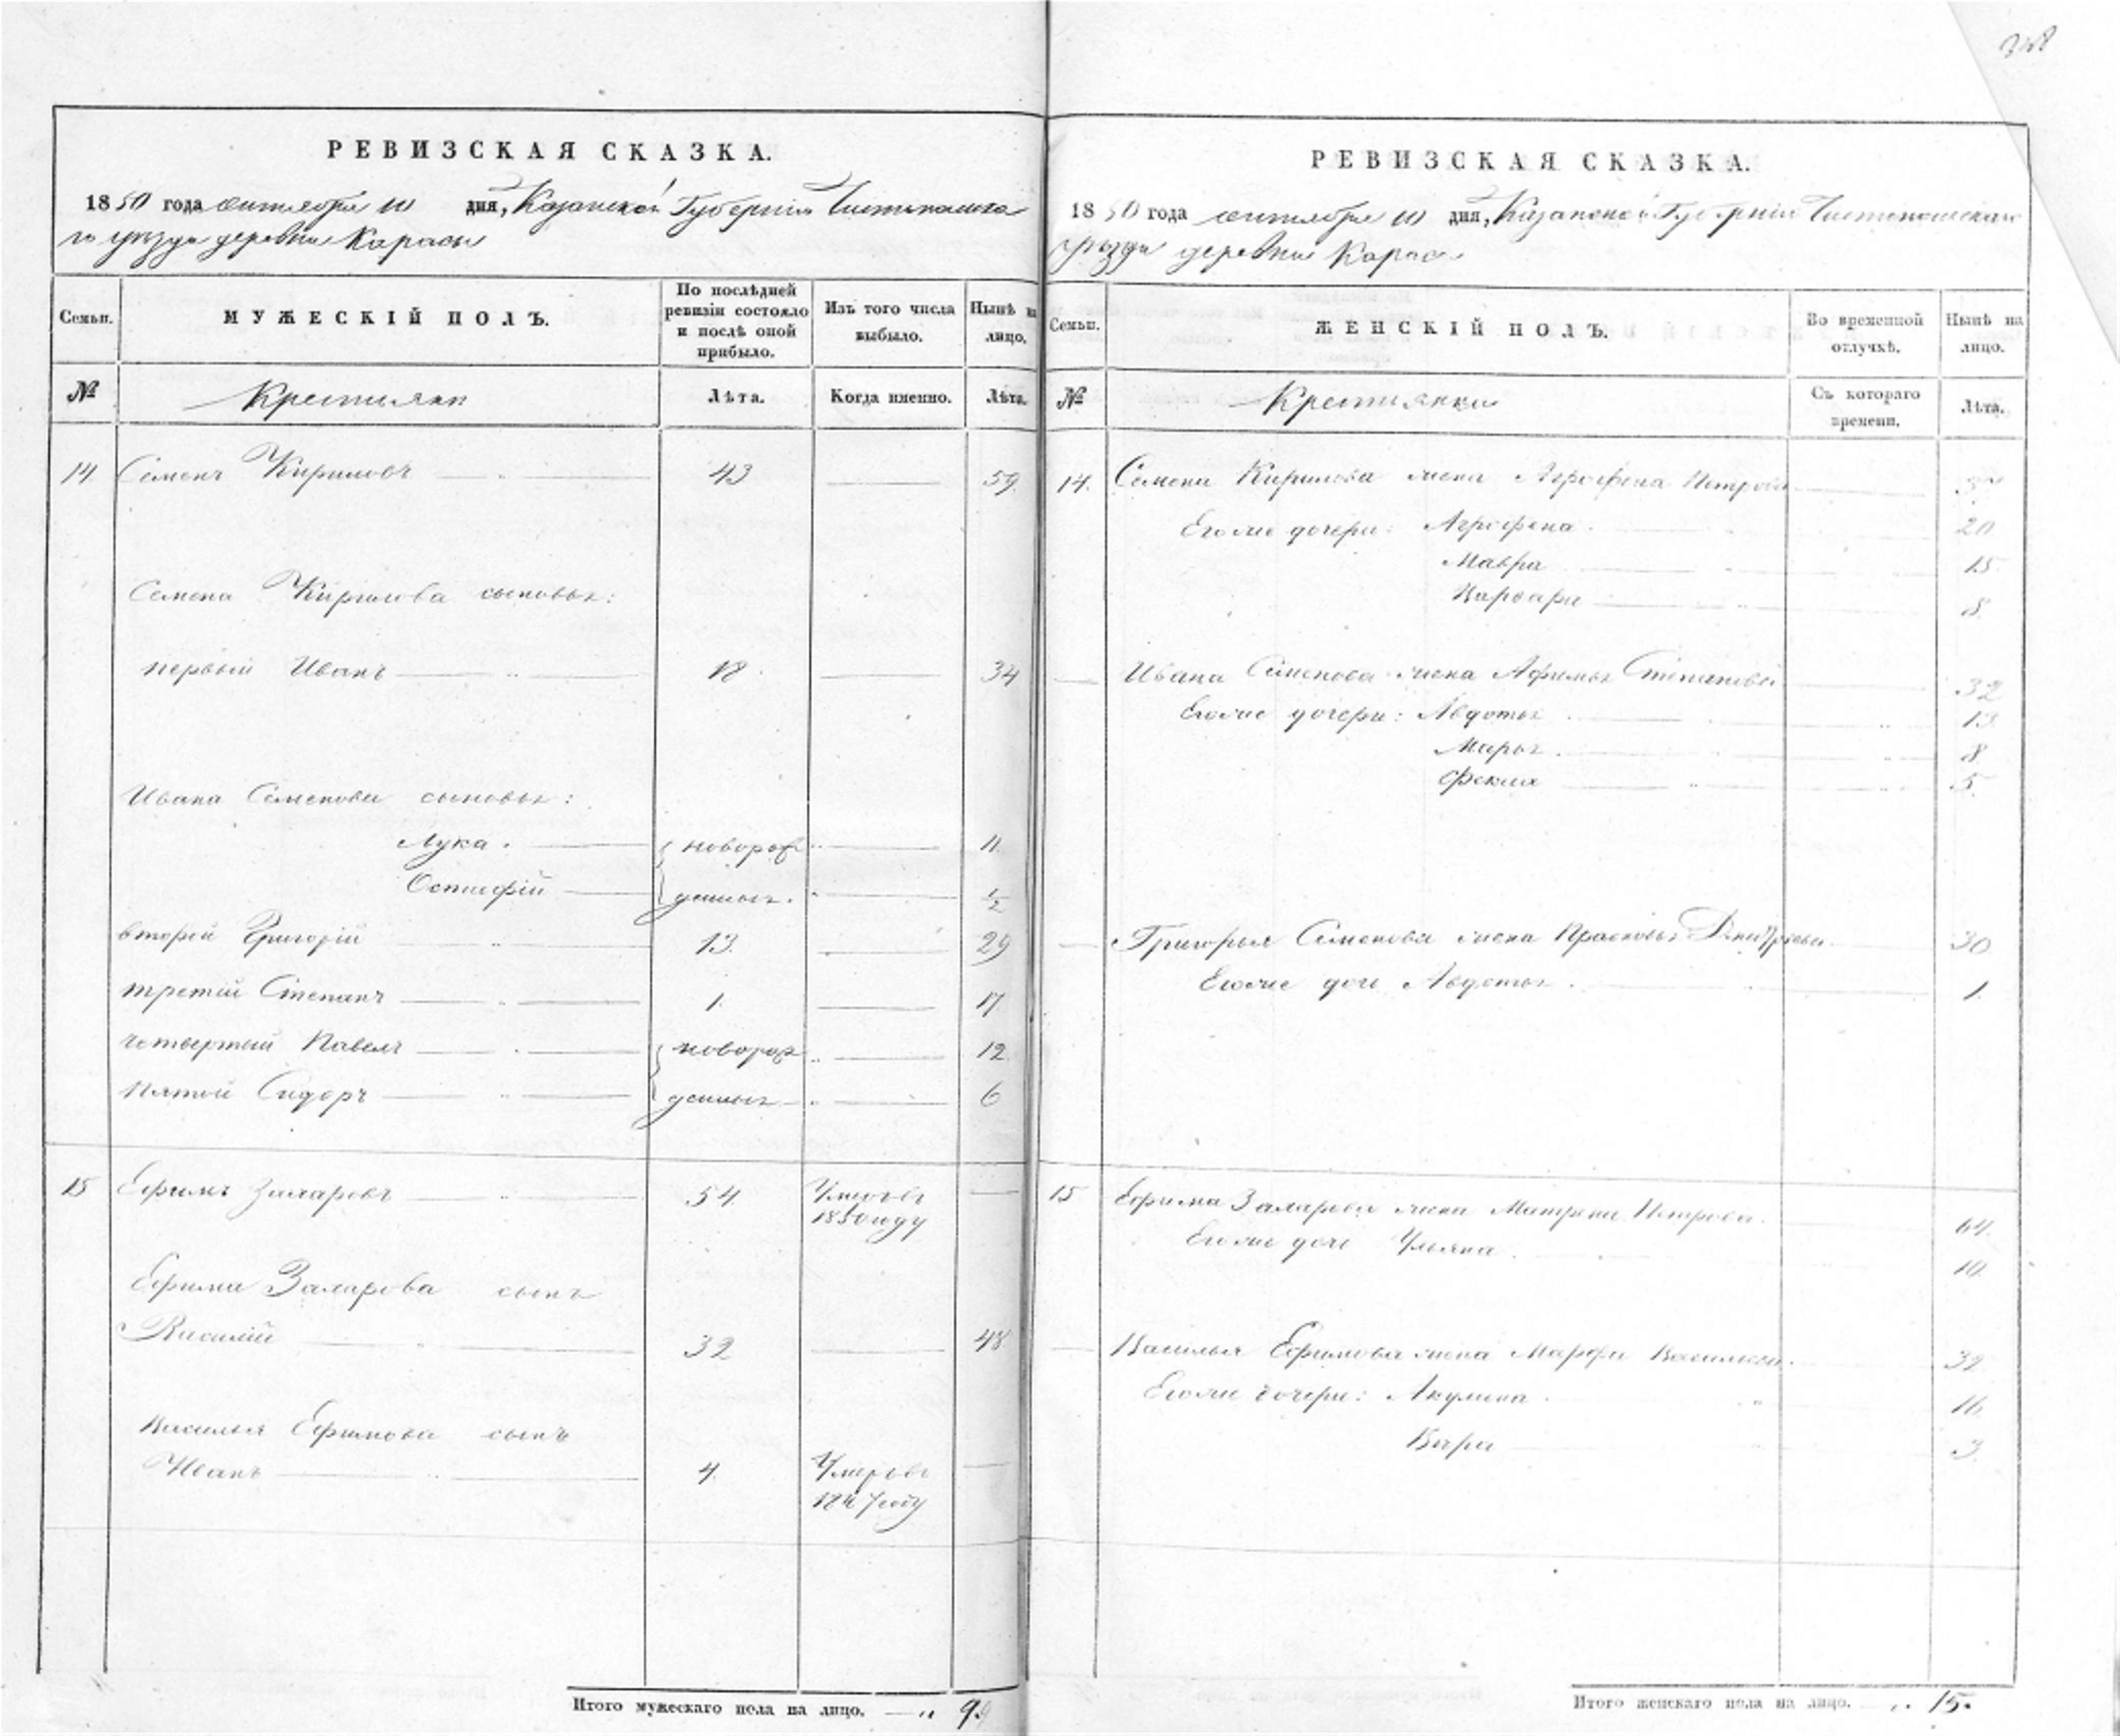 РЕВИЗСКАЯ СКАЗКА.
1850 года сентября 10 дня, Казанской Губерніи Чистопольска
го уезда деревни Карасы
Семьи. МУЖЕСКІЙ ПОЛЪ. По послѣдней ревизіи состояло и послѣ оной прибыло. Изъ того числа выбыло. Нынѣ на лицо.
№ Крестьяне Лѣта. Когда именно. Лѣта.
14 Семенъ Кириловъ 43 59.
Семена Кирилова сыновья:
первый Иванъ 18 34
Ивана Семенова сыновья:
Лука. новорож 11.
Остафій денныя. 1/2
вторый Григорій 13. 29
третій Степанъ 1. 17
четвертый Павелъ новорож 12
пятой Сидоръ денныя 6
15 Ефимъ Захаровъ 54. Умеръ въ
1850 году
Ефима Захарова сынъ
Василій 32 48
Василья Ефимова сынъ
Иванъ 4. Умеръ въ
1847 году
Итого мужескаго пола на лицо. 9.
РЕВИЗСКАЯ СКАЗКА.
1850 года сентября 10 дня, Казанской Губерніи Чистопольскаго
уезда деревни Карасы
Семьи. ЖЕНСКІЙ ПОЛЪ. Во временной отлучкѣ. Нынѣ на лицо.
№ Крестьянки Съ котораго времени. Лѣта.
14. Семена Кирилова жена Агрофена Петрова
Его же дочери: Агрофена 20
Мавра 15
Варвара 8.
Ивана Семенова жена Афимья Степанова 32
Его же дочери: Авдотья 13
Марья 8
Фекла 5.
Григорья Семенова жена Прасковья Дмитріева 30
Его же дочь Авдотья 1.
15 Ефима Захарова жена Матрена Петрова 64.
Его же дочь Ульяна 10.
Василья Ефимова жена Марфа Васильева 39
Его же дочери: Акулина 16
Вара 3
Итого женскаго пола на лицо. 15.